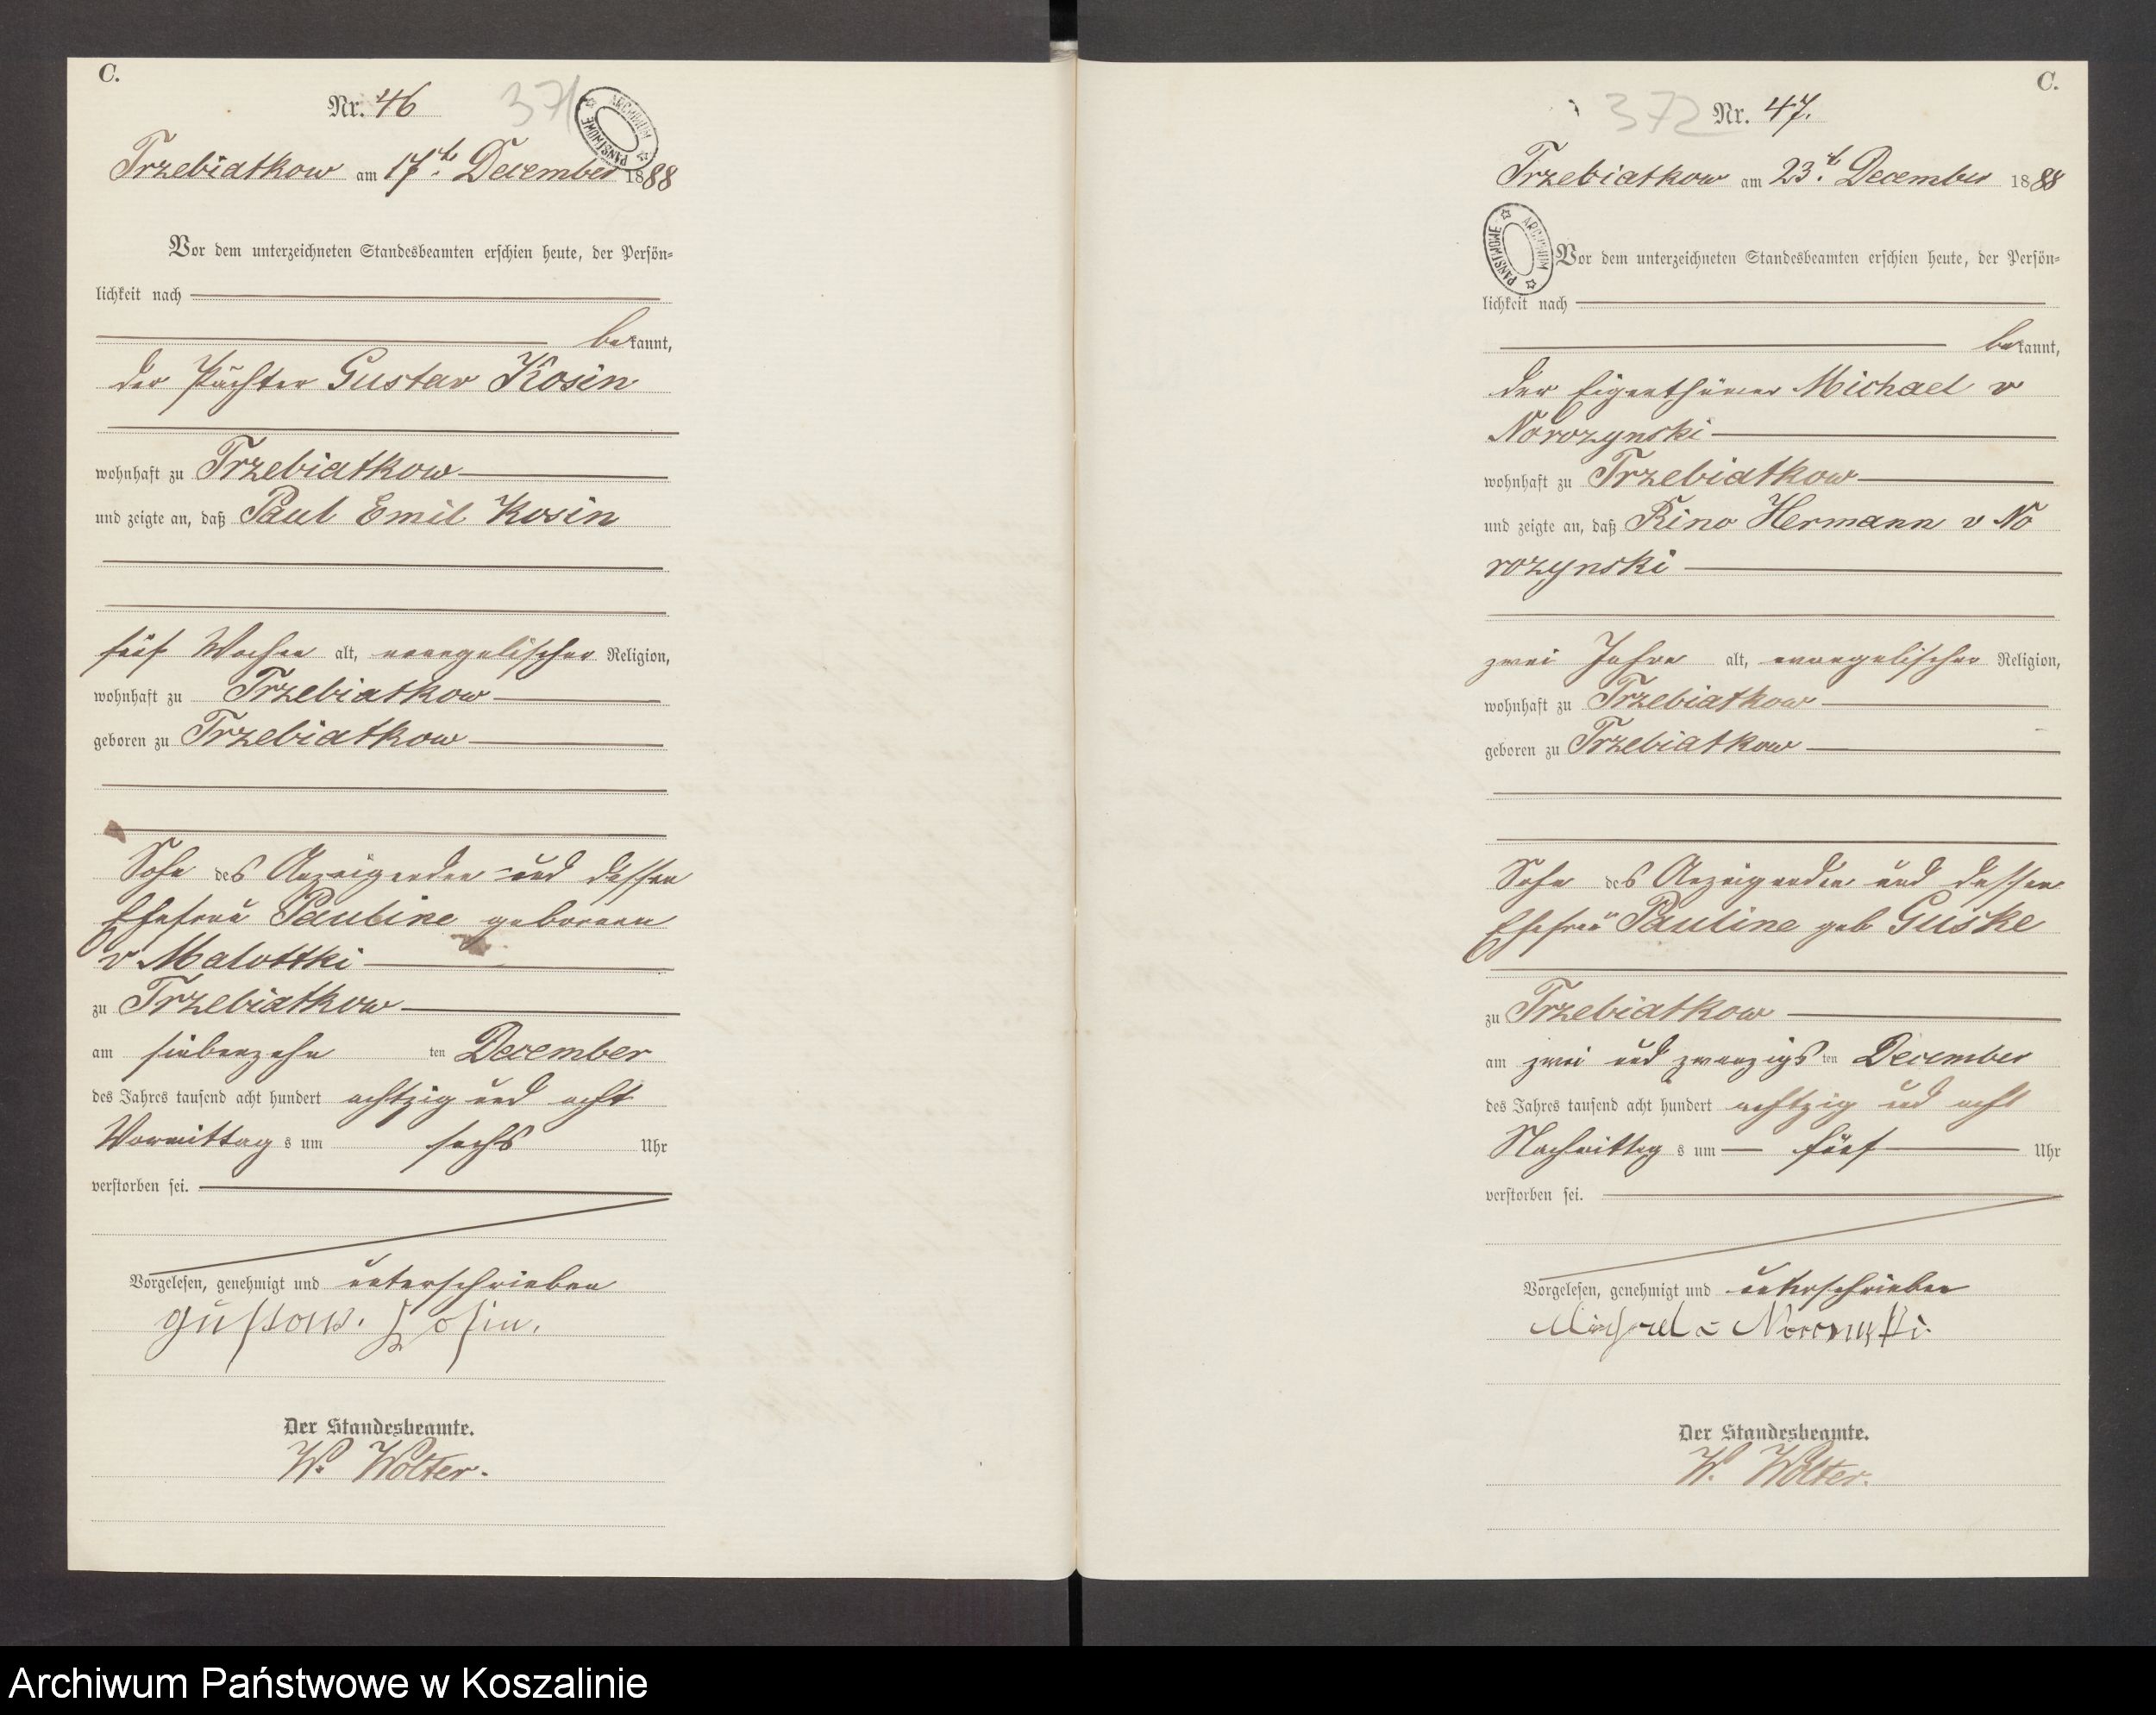 C.
Nr. 46
371
ARCHIWUM PAŃSTWOWE
Trzebiatkow am 17t. December 1888
Vor dem unterzeichneten Standesbeamten erschien heute, der Persön-
lichkeit nach
bekannt,
der Pächter Gustav Kosin
wohnhaft zu Trzebiatkow
und zeigte an, daß Paul Emil Kosin
fünf Wochen alt, evangelischer Religion,
wohnhaft zu Trzebiatkow
geboren zu Trzebiatkow
Sohn des Anzeigenden und dessen
Ehefrau Pauline geborenen
v Malottki
zu Trzebiatkow
am siebenzehn ten December
des Jahres tausend acht hundert achtzig und acht
Vormittag s um sechs Uhr
verstorben sei.
Vorgelesen, genehmigt und unterschrieben
Gustaw. Kosin.
Der Standesbeamte.
W. Wolter.
C.
372
Nr. 47.
Trzebiatkow am 23t. December 1888
ARCHIWUM PAŃSTWOWE
Vor dem unterzeichneten Standesbeamten erschien heute, der Persön-
lichkeit nach
bekannt,
der Eigenthümer Michael v
Norozynski
wohnhaft zu Trzebiatkow
und zeigte an, daß Rino Hermann v No
rozynski
zwei Jahre alt, evangelischer Religion,
wohnhaft zu Trzebiatkow
geboren zu Trzebiatkow
Sohn des Anzeigenden und dessen
Ehefrau Pauline geb Guske
zu Trzebiatkow
am zwei und zwanzigs ten December
des Jahres tausend acht hundert achtzig und acht
Nachmittag s um fünf Uhr
verstorben sei.
Vorgelesen, genehmigt und unterschrieben
Michael v
Der Standesbeamte.
W. Wolter.
Archiwum Państwowe w Koszalinie